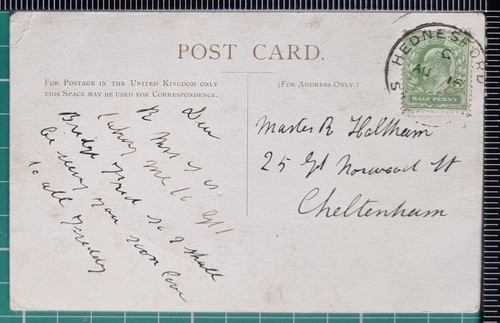 POST CARD.
FOR POSTAGE IN THE UNITED KINGDOM ONLY
THIS SPACE MAY BE USED FOR CORRESPONDENCE.
(FOR ADDRESS ONLY.)
HEDNESFORD
C
AU 15
S
HALF PENNY
Dear
R Mrs G is
taking me to Gt
Bridge so I shall
be seeing you soon love
to all
Master R Holtham
25 Gt Norwood St
Cheltenham